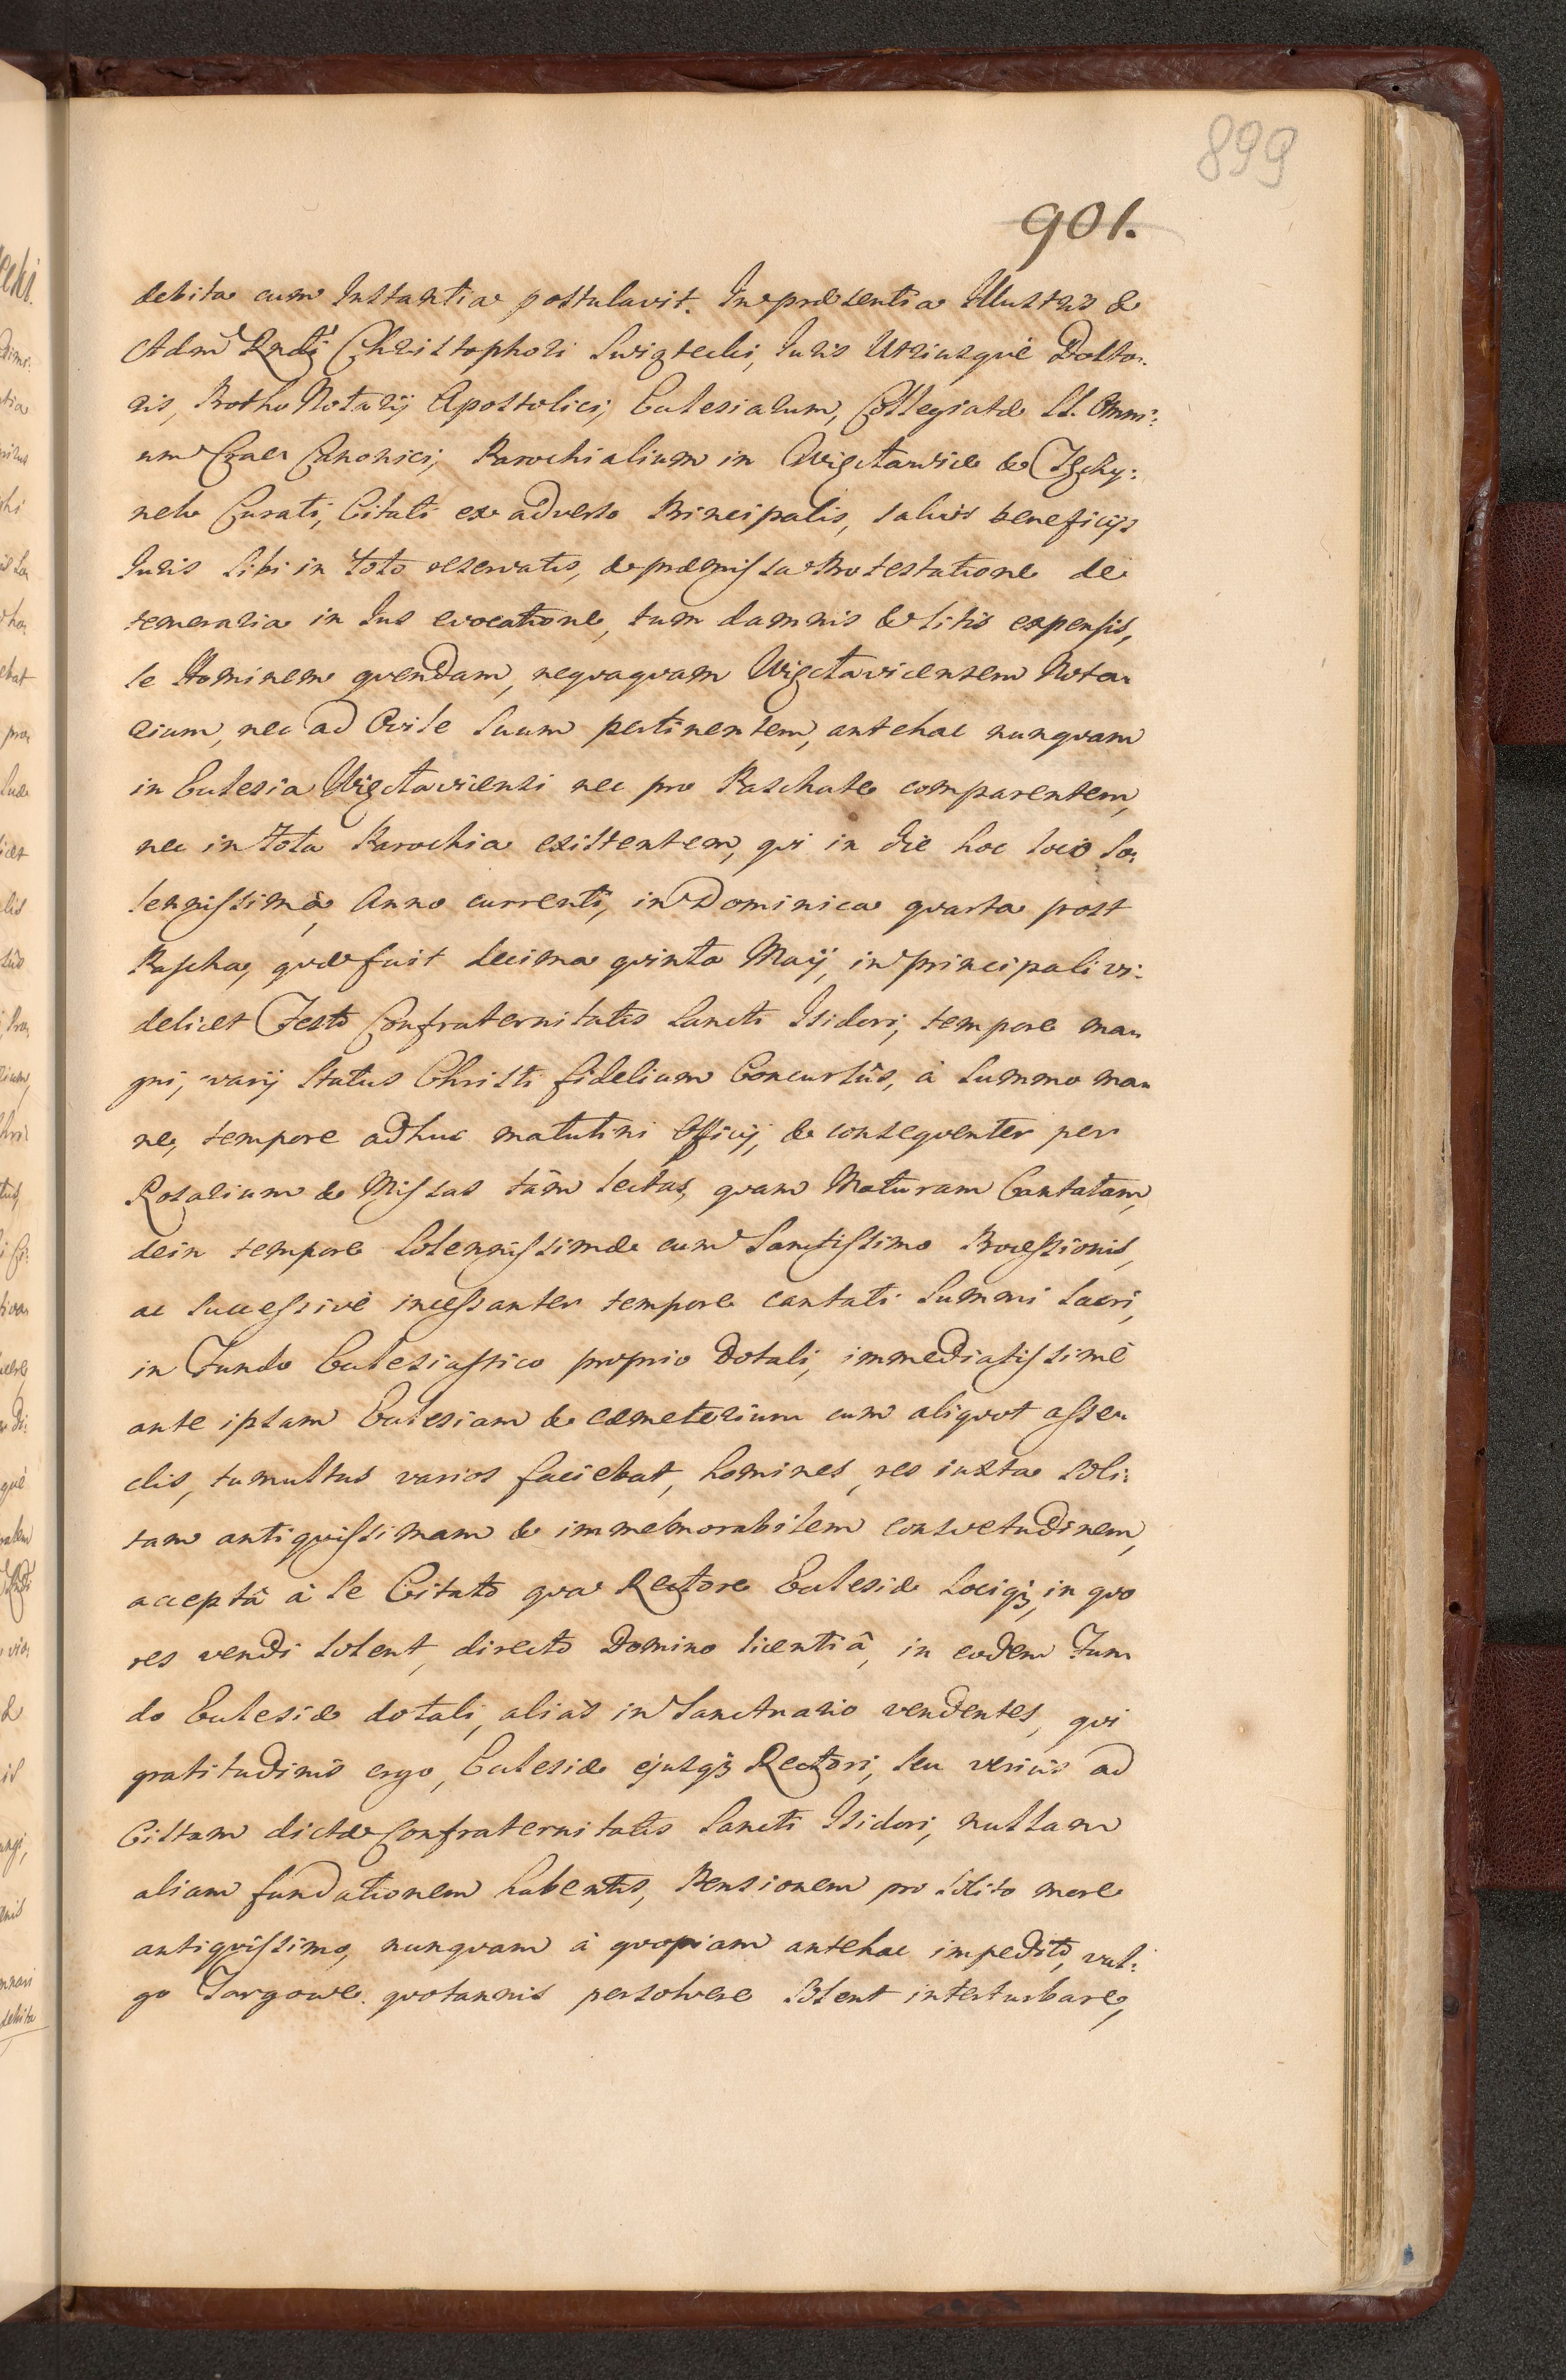 899
901.
debita cum Instantia postulavit. In præsentia Illustris &
Adm Rndi Christophori Swięcki, Iuris Utriusquè Docto-
ris, Protho Notarij Apostolici, Ecclesiarum, Collegiatæ SS. Omni:
um Crac: Canonici, Parochialium in Więctawice &
neh Curati, Citati ex adverso Principalis, salvis beneficijs
Iuris sibi in toto reservatis, & præmissa Protestatione de
temeraria in Ius evocatione, tum damnis & litis expensis,
se Hominem quendam, nequaquam Więctavicensem Nota-
rium, nec ad Ovile suum pertinentem, antehac nunquam
in Ecclesia Więctaviensi nec pro Paschate comparentem,
nec in tota Parochia existentem, qui in die hoc loco so-
lennissimâ, Anno currenti, in Dominica quarta post
Pascha, quæ fuit decima quinta Maij, in principali vi:
delicet Festo Confraternitatis Sancti Isidori, tempore ma-
gni, varij Status Christi fidelium Concursûs, à summo ma-
ne, tempore adhuc matutini Officij, & consequenter per
Rosarium & Missas tàm lectas, quam Maturam Cantatam,
dein tempore solennissimæ cum Sanctissimo Processionis,
ac successivè incessanter tempore cantati Summi Sacri,
in Fundo Ecclesiastico proprio Dotali, immediatissimè
ante ipsam Ecclesiam & cæmeterium cum aliquot asse-
clis, tumultus varios faciebat, homines, res iuxta soli:
tam antiquissimam & immemorabilem consvetudinem,
acceptâ à se Citato qua Rectore Ecclesiæ Lociq3, in quo
res vendi solent, directo Domino licentiâ, in eodem Fun
do Ecclesiæ dotali, aliàs in Sanctuario vendentes, qui
gratitudinis ergo, Ecclesiæ ejusq3 Rectori, seu veriùs ad
Cistam dictæ Confraternitatis Sancti Isidori, nullam
aliam fundationem habentis, Pensionem pro solito more
antiquissimo, nunquam à quopiam antehac impedito, vul:
go Targowe quotannis persolvere solent interturbare,